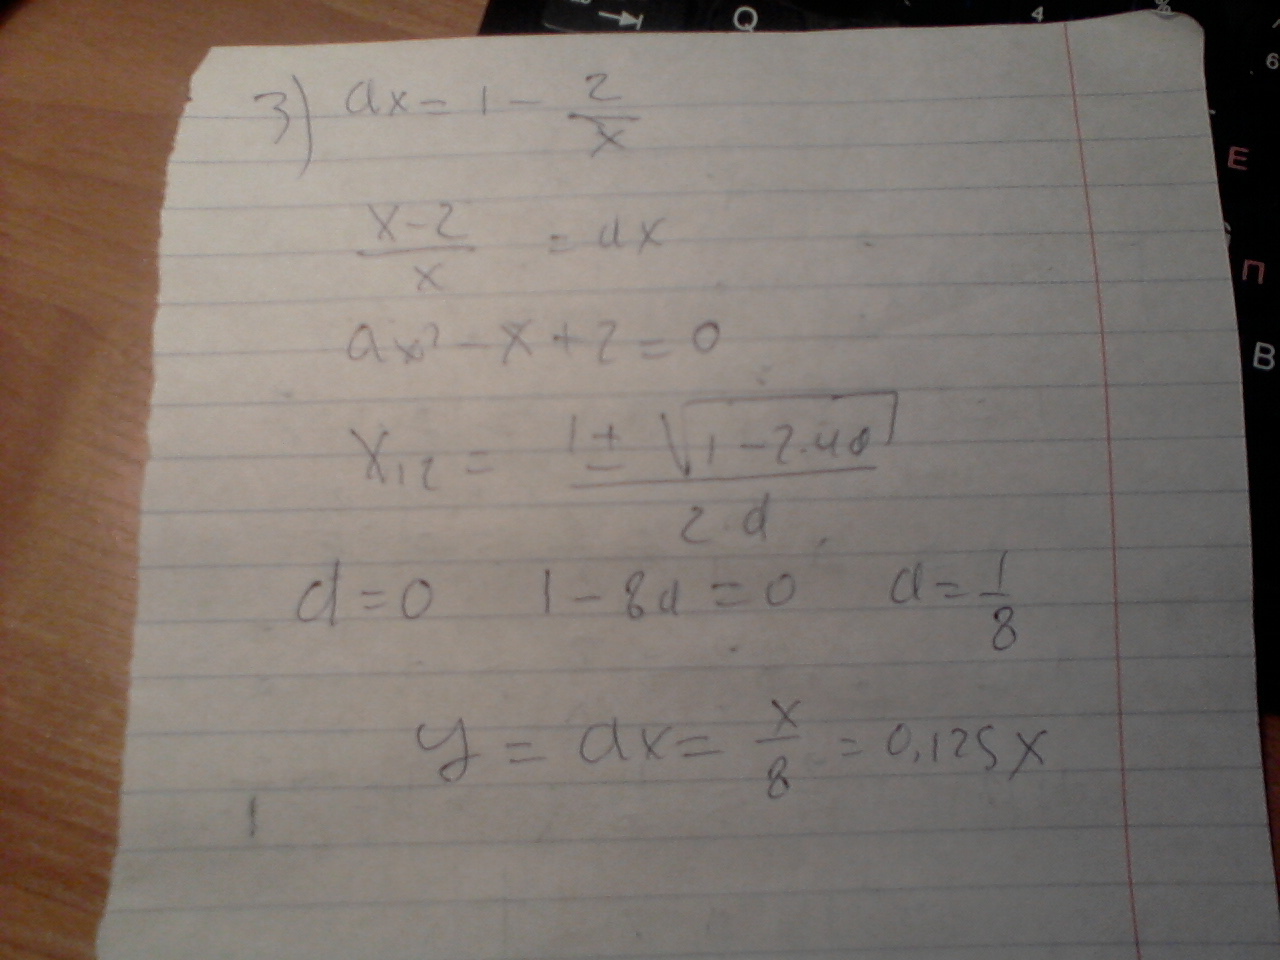 Q
4
6
3) ax = 1 - 2/x
Е
(x-2)/x = ax
П
ax² - x + 2 = 0
В
x₁₂ = (1 ± √(1 - 2·4a))/(2a)
a = 0 1 - 8a = 0 a = 1/8
y = ax = x/8 = 0,125x